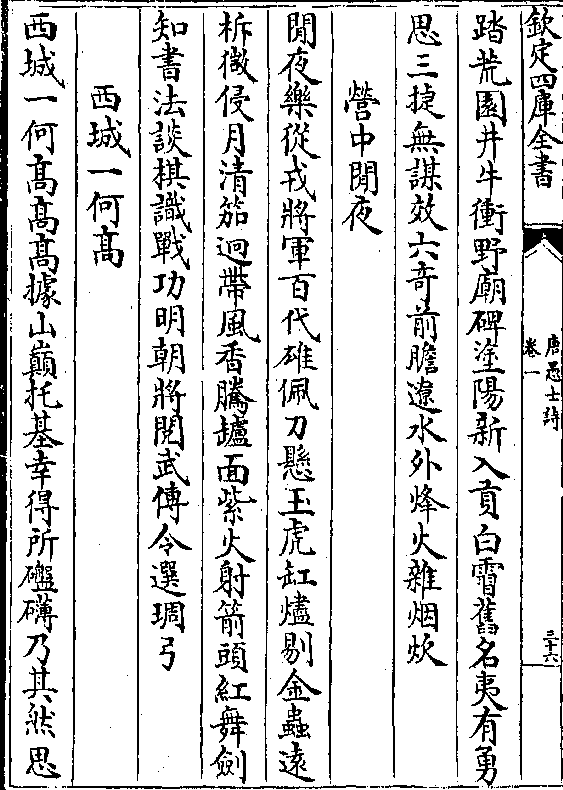 欽定四庫全書
唐愚士詩
卷一
三十六
踏荒園井牛衝野廟碑塗陽新入貢白霫舊名夷有勇
思三捷無謀效六奇前瞻遼水外烽火雜烟炊
營中閒夜
閒夜樂從戎將軍百代雄佩刀懸玉虎缸燼剔金蟲遠
柝微侵月清笳迥帶風香騰罏面紫火射箭頭紅舞劍
知書法談棋識戰功明朝將閲武傳令選琱弓
西城一何髙
西城一何髙髙髙據山巔托基幸得所礷礴乃其然思